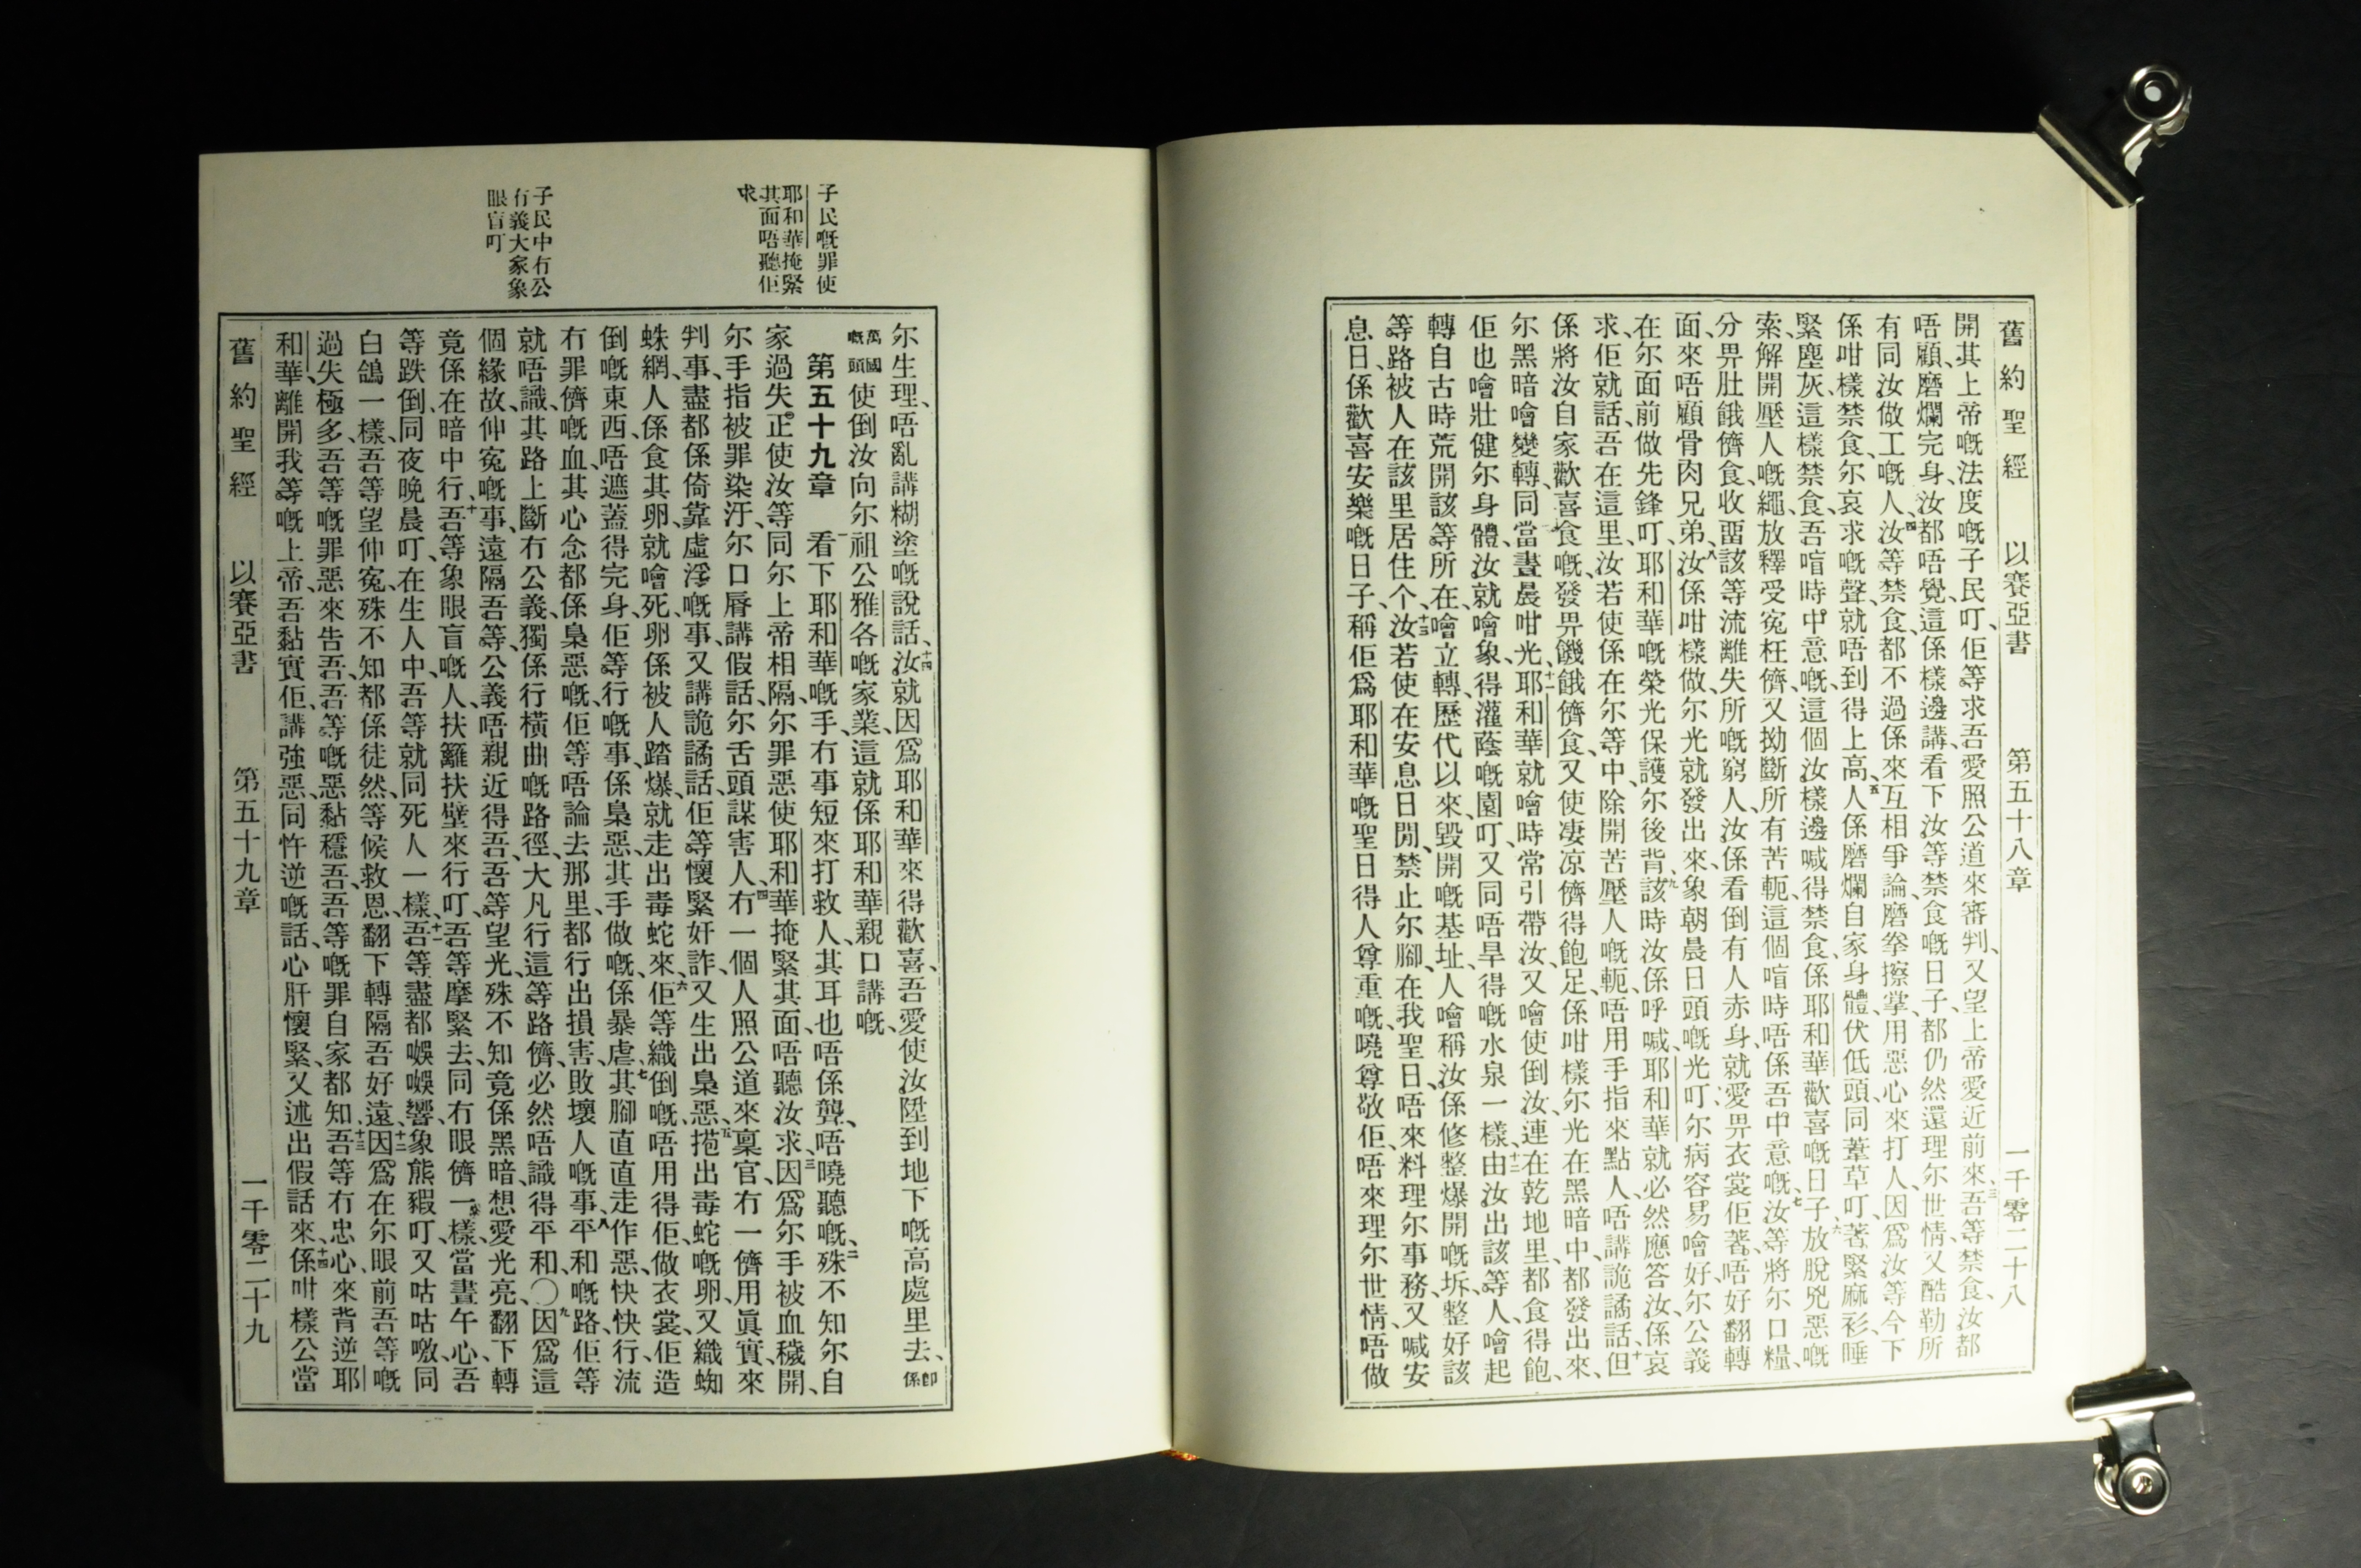 舊約聖經 以賽亞書 第五十八章 一千零二十八
開其上帝嘅法度嘅子民叮、佢等求吾愛照公道來審判、又望上帝愛近前來、三吾等禁食、汝都
唔顧、磨爛完身、汝都唔覺、這係樣邊講、看下汝等禁食嘅日子、都仍然還理尔世情、又酷勒所
有同汝做工嘅人、四汝等禁食、都不過係來互相爭論、磨拳擦掌、用惡心來打人、因爲汝等今下
係咁樣禁食、尔哀求嘅聲、就唔到得上高、五人係磨爛自家身體、伏低頭同葦草叮、著緊麻衫、睡
緊塵灰、這樣禁食、吾喑時中意嘅、這個汝樣邊喊得禁食、係耶和華歡喜嘅日子、六放脫兇惡嘅
索、解開壓人嘅繩、放釋受寃枉儕、又拗斷所有苦軛、這個喑時唔係吾中意嘅、七汝等將尔口糧、
分畀肚餓儕食、收畱該等流離失所嘅窮人、汝係看倒有人赤身、就愛畀衣裳佢著、唔好翻轉
面來唔顧骨肉兄弟、八汝係咁樣做、尔光就發出來、象朝晨日頭嘅光叮、尔病容易噲好、尔公義
在尔面前做先鋒叮、耶和華嘅榮光保護尔後背、九該時汝係呼喊、耶和華就必然應答汝、係哀
求佢就話、吾在這里、汝若使係在尔等中、除開苦壓人嘅軛、唔用手指來點人、唔講詭譎話、十但
係將汝自家歡喜食嘅、發畀饑餓儕食、又使凄凉儕得飽足、係咁樣尔光在黑暗中、都發出來、
尔黑暗噲變轉、同當晝晨咁光、十一耶和華就噲時常引帶汝、又噲使倒汝、連在乾地里都食得飽、
佢也噲壯健尔身體、汝就噲象得灌蔭嘅園叮、又同唔旱得嘅水泉一樣、十二由汝出該等人、噲起
轉自古時荒開該等所在、噲立轉歷代以來毀開嘅基址、人噲稱汝係修整爆開嘅坼、整好該
等路被人在該里居住个、十三汝若使在安息日閒、禁止尔腳、在我聖日、唔來料理尔事務、又喊安
息日、係歡喜安樂嘅日子、稱佢爲耶和華嘅聖日、得人尊重嘅、曉尊敬佢、唔來理尔世情、唔做
子民嘅罪使
耶和華掩緊
其面唔聽佢
求
子民中冇公
冇義大家象
眼盲叮
尔生理、唔亂講糊塗嘅說話、十四汝就因爲耶和華來得歡喜、吾愛使汝陞到地下嘅高處里去、卽係
萬國嘅頭使倒汝向尔祖公雅各嘅家業、這就係耶和華親口講嘅、
第五十九章 一看下耶和華嘅手、冇事短來打救人、其耳也唔係聾、唔曉聽嘅、二殊不知尔自
家過失、正使汝等同尔上帝相隔、尔罪惡使耶和華掩緊其面、唔聽汝求、三因爲尔手被血穢開、
尔手指被罪染汙、尔口脣講假話、尔舌頭謀害人、四冇一個人照公道來稟官、冇一儕用眞實來
判事、盡都係倚靠虛浮嘅事、又講詭譎話、佢等懷緊奸詐、又生出梟惡、五菢出毒蛇嘅卵、又織蜘
蛛網、人係食其卵、就噲死、卵係被人踏爆、就走出毒蛇來、六佢等織倒嘅、唔用得佢做衣裳、佢造
倒嘅東西、唔遮蓋得完身、佢等行嘅事、係梟惡、其手做嘅、係暴虐、七其腳直直走作惡、快快行、流
冇罪儕嘅血、其心念都係梟惡嘅、佢等唔論去那里、都行出損害、敗壞人嘅事、八平和嘅路、佢等
就唔識、其路上斷冇公義、獨係行橫曲嘅路徑、大凡行這等路儕、必然唔識得平和、〇九因爲這
個緣故、伸寃嘅事、遠隔吾等、公義唔親近得吾、吾等望光、殊不知竟係黑暗、想愛光亮、翻下轉
竟係在暗中行、十吾等象眼盲嘅人、扶籬扶壁來行叮、吾等摩緊去、同冇眼儕一樣、當晝午心、吾
等跌倒、同夜晚晨叮、在生人中、吾等就同死人一樣、十一吾等盡都嗥嗥響、象熊豭叮、又咕咕噭、同
白鴿一樣、吾等望伸寃、殊不知都係徒然、等候救恩、翻下轉隔吾好遠、十二因爲在尔眼前、吾等嘅
過失極多、吾等嘅罪惡來告吾、吾等嘅惡黏穩吾、吾等嘅罪自家都知、十三吾等冇忠心、來背逆耶
和華、離開我等嘅上帝、吾黏實佢、講強惡、同忤逆嘅話、心肝懷緊、又述出假話來、十四係咁樣公當
舊約聖經 以賽亞書 第五十九章 一千零二十九